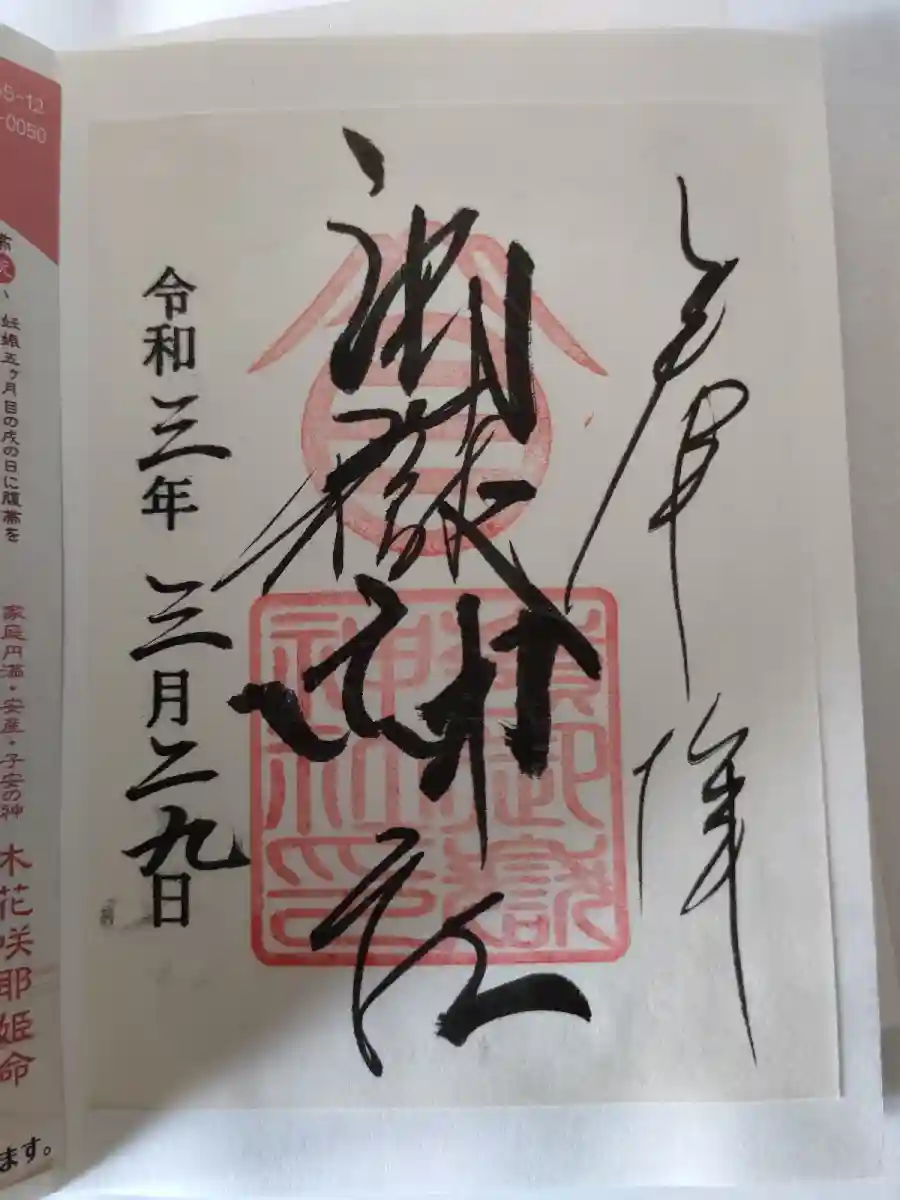 奉拝
御嶽神社
令和三年三月二九日
-12
-0050
妊娠五ヶ月目の戌の日に腹帯を
家庭円満・安産・子安の神
木花咲耶姫命
ます。